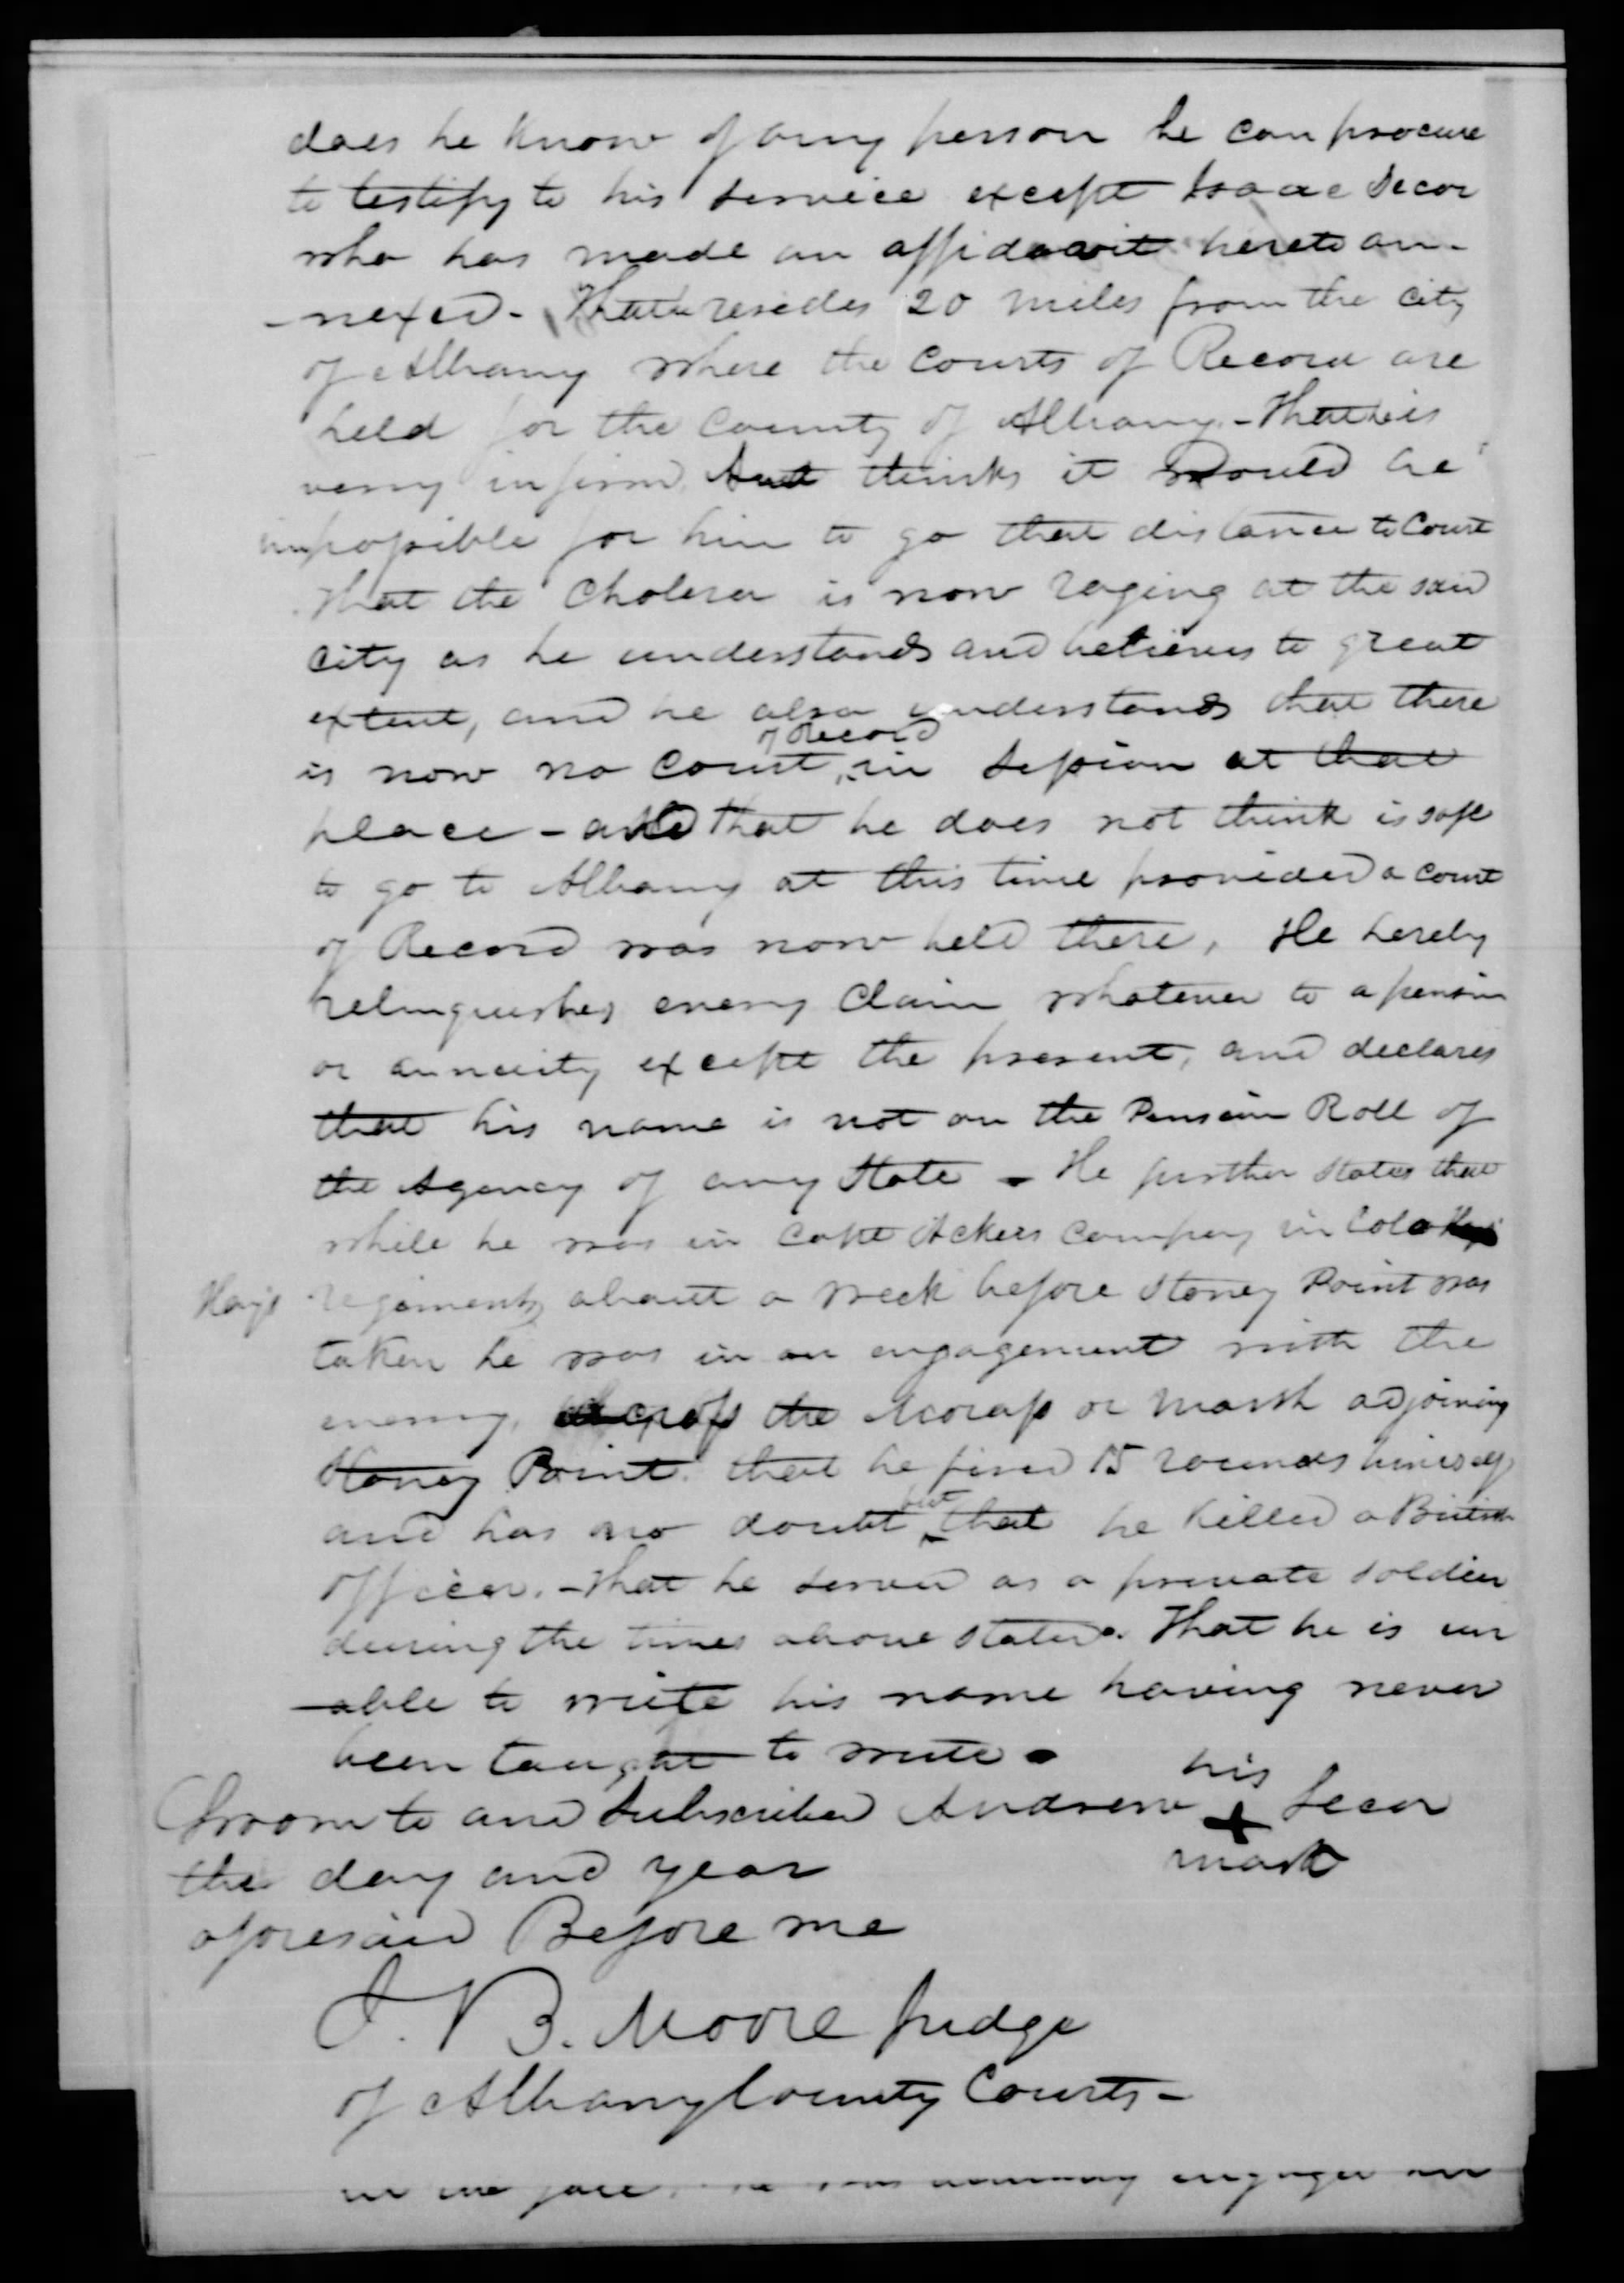 does he know of any person he can procure
to testify to his service except Isaac Secor
who has made an affidavit hereto an-
-nexed - That he resides 20 miles from the city
of Albany where the Courts of Record are
held for the County of Albany - That he is
very infirm and thinks it would be
impossible for him to go that distance to Court
That the Cholera is now raging at the said
city as he understands and believes to great
extent, and he also understands that there
is now no Court of Record in session at that
place - and that he does not think is safe
to go to Albany at this time provided a Court
of Record was now held there, He hereby
relinquishes every claim whatever to a pension
or annuity except the present, and declares
that his name is not on the Pension Roll of
the Agency of any State - He further states that
while he was in Capt Ackers Company in Col
Hays regiment, about a week before Stoney Point was
taken he was in an engagement with the
enemy, across the Morass or Marsh adjoining
Stoney Point. that he fired 15 rounds himself
and has no doubt but that he killed a British
officer. - that he served as a private soldier
during the times above stated. That he is un
-able to write his name having never
been taught to write.
his
Sworn to and Subscribed Andrew + Secor
the day and year mark
aforesaid Before me
J. B. Moore Judge
of Albany County Courts -
engaged